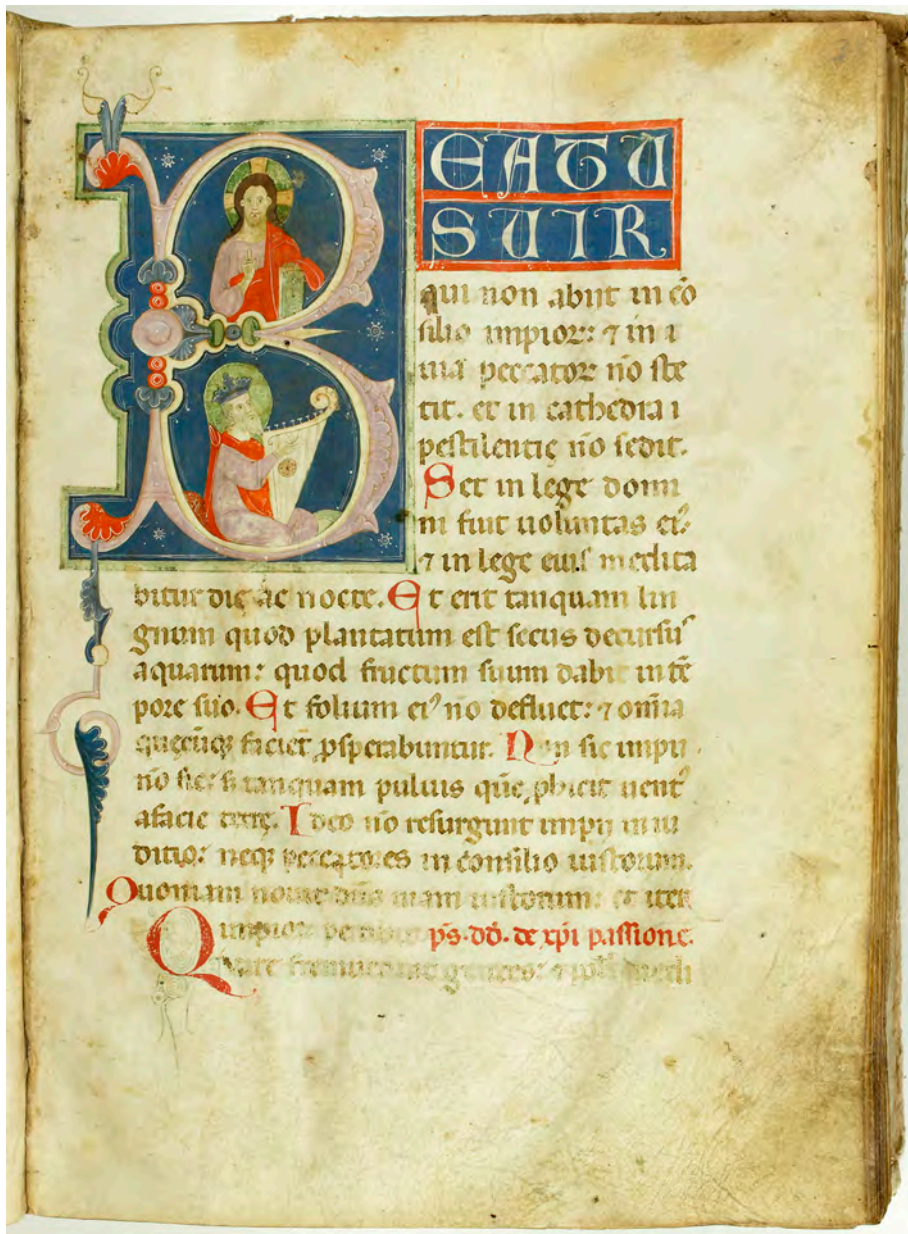 BEATU
S UIR
qui non abiit in cō
silio impioꝝ: ⁊ in i
uia peccatoꝝ nō ste
tit. et in cathedra i
pestilentię nō sedit.
Set in lege domi
ni fuit uoluntas eiꝰ
⁊ in lege eius medita
bitur dię ac nocte. Et erit tanquam lin
gnum quod plantatum est secus decursuˢ
aquarum: quod fructum suum dabit in tē
pore suo. Et folium eiꝰ nō defluet: ⁊ omnia
quęcūqꝫ faciet ꝓsperabuntur. Non sic impii
nō sic: s; tanquam puluis quē ꝓhicit uentꝰ
afacie terrę. Ideo nō resurgunt impii in iu
ditio: neqꝫ peccatores in consilio iustorum.
Quoniam nouit dn̄s uiam iustorum: et iter
impioꝝ peribit. pˢ. dd̄. de xp̄i passione.
Quare fremuerunt gentes: ⁊ ppl̄i